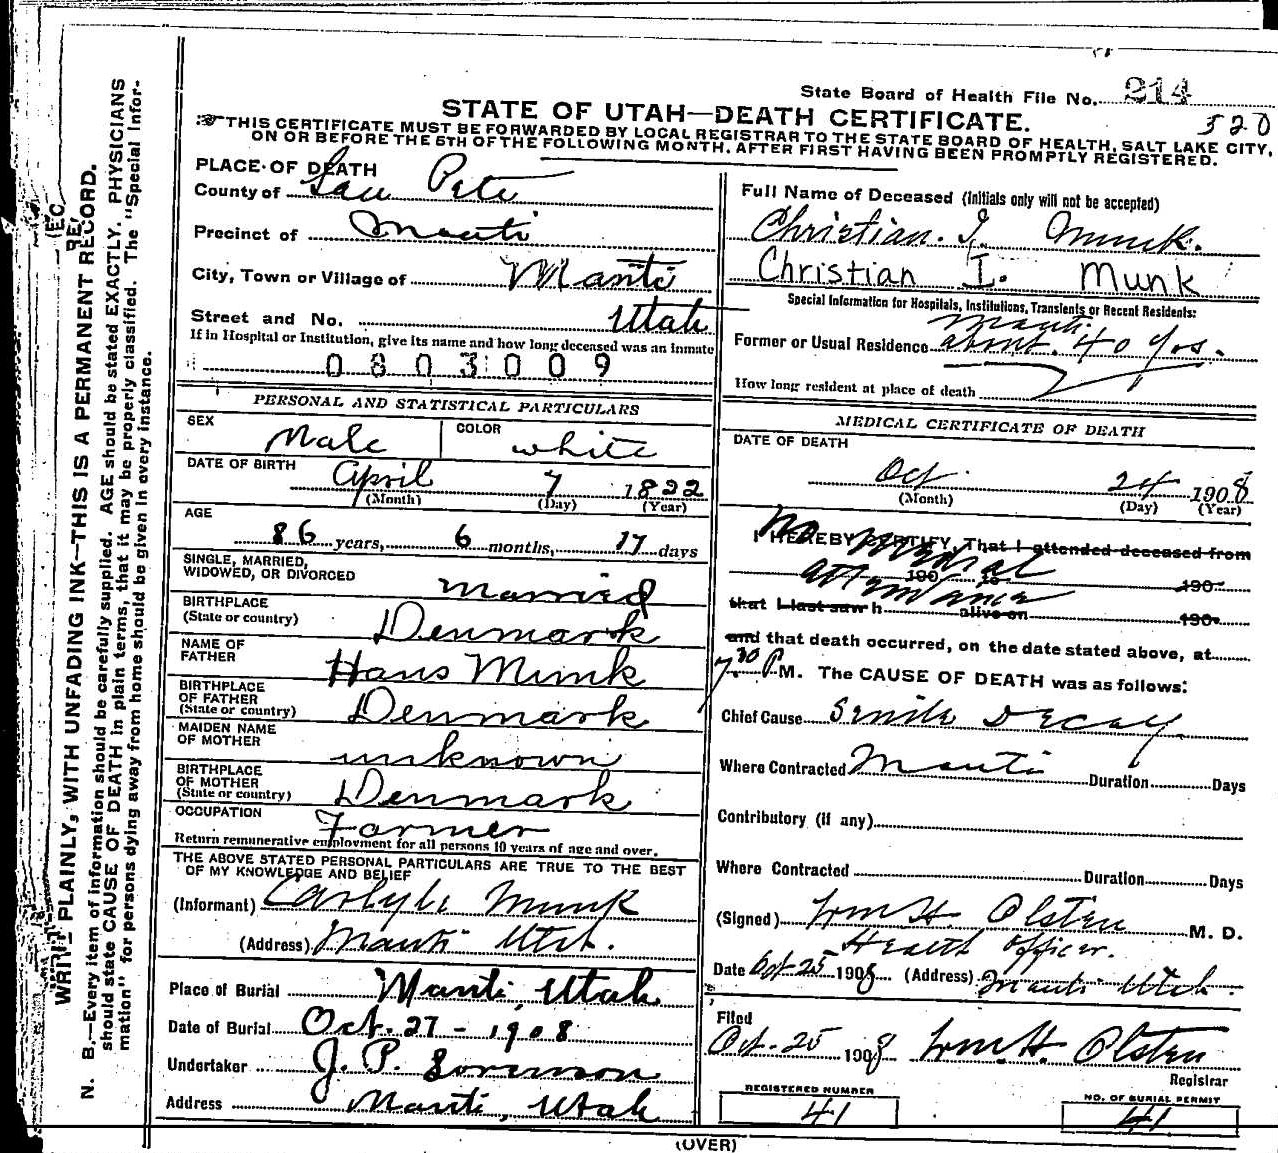 State Board of Health File No. 214
STATE OF UTAH—DEATH CERTIFICATE.
520
THIS CERTIFICATE MUST BE FORWARDED BY LOCAL REGISTRAR TO THE STATE BOARD OF HEALTH, SALT LAKE CITY,
ON OR BEFORE THE 5TH OF THE FOLLOWING MONTH, AFTER FIRST HAVING BEEN PROMPTLY REGISTERED.
WRITE PLAINLY, WITH UNFADING INK—THIS IS A PERMANENT RECORD.
N. B.—Every item of information should be carefully supplied. AGE should be stated EXACTLY. PHYSICIANS
should state CAUSE OF DEATH in plain terms, that it may be properly classified. The "Special Infor-
mation" for persons dying away from home should be given in every instance.
PLACE OF DEATH
County of San Pete
Precinct of Manti
City, Town or Village of Manti
Street and No. Utah
If in Hospital or Institution, give its name and how long deceased was an inmate
0803009
PERSONAL AND STATISTICAL PARTICULARS
SEX Male COLOR white
DATE OF BIRTH April 7 1822
(Month) (Day) (Year)
AGE
86 years, 6 months, 17 days
SINGLE, MARRIED,
WIDOWED, OR DIVORCED married
BIRTHPLACE
(State or country) Denmark
NAME OF
FATHER Hans Munk
BIRTHPLACE
OF FATHER
(State or country) Denmark
MAIDEN NAME
OF MOTHER unknown
BIRTHPLACE
OF MOTHER
(State or country) Denmark
OCCUPATION Farmer
Return remunerative employment for all persons 10 years of age and over.
THE ABOVE STATED PERSONAL PARTICULARS ARE TRUE TO THE BEST
OF MY KNOWLEDGE AND BELIEF
(Informant) Carlyle Munk
(Address) Manti Utah.
Place of Burial Manti, Utah
Date of Burial Oct. 27 - 1908
Undertaker J. P. Sorenson
Address Manti, Utah
Full Name of Deceased (Initials only will not be accepted)
Christian. I. Munk.
Christian I. Munk
Special Information for Hospitals, Institutions, Transients or Recent Residents:
Manti.
Former or Usual Residence about. 40 Yrs.
How long resident at place of death
MEDICAL CERTIFICATE OF DEATH
DATE OF DEATH
Oct. 24 1908
(Month) (Day) (Year)
I HEREBY CERTIFY, That I attended deceased from
No medical
190 to 190
attendance
that I last saw h alive on 190
and that death occurred, on the date stated above, at
7.30 P.M. The CAUSE OF DEATH was as follows:
Chief Cause Senile Decay
Where Contracted Manti Duration Days
Contributory (if any)
Where Contracted Duration Days
(Signed) Wm H. Olsten M. D.
Health Officer.
Date Oct 25 1908 (Address) Manti Utah.
Filed
Oct. 25 1908 Wm. H. Olsten
Registrar
REGISTERED NUMBER
41
NO. OF BURIAL PERMIT
41
(OVER)